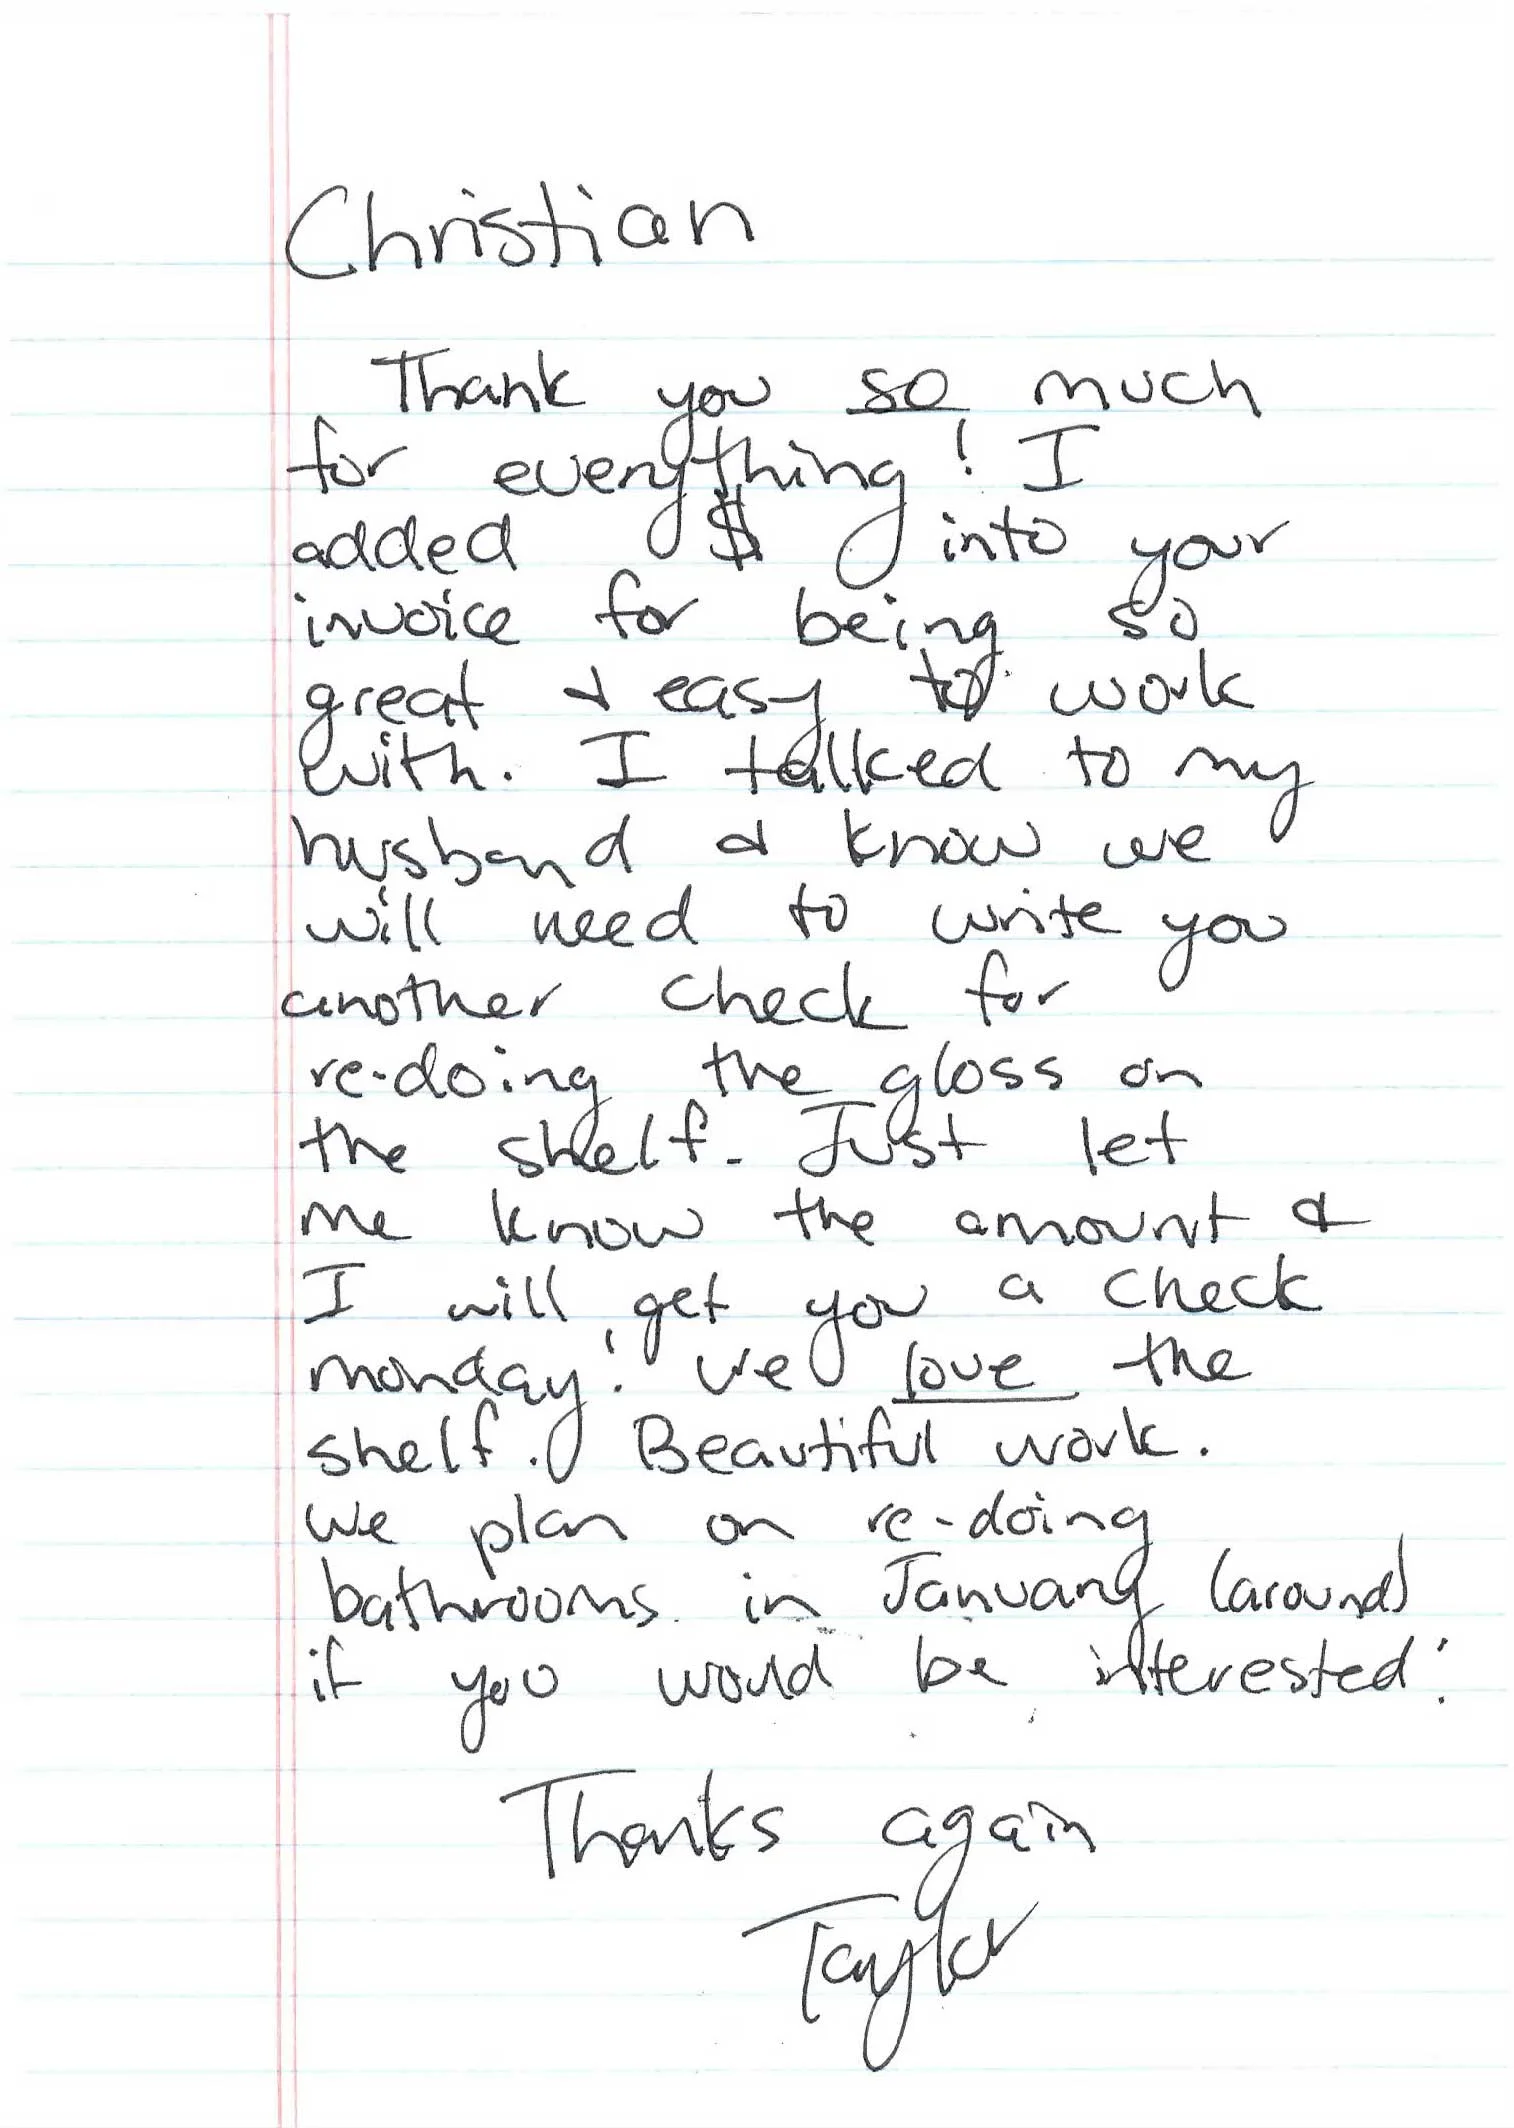 Christian
Thank you so much
for everything! I
added $ into your
invoice for being so
great & easy to work
with. I talked to my
husband & know we
will need to write you
another check for
re-doing the gloss on
the shelf. Just let
me know the amount &
I will get you a check
monday! We love the
shelf. Beautiful work.
We plan on re-doing
bathrooms in January (around)
if you would be interested!
Thanks again
Taylor